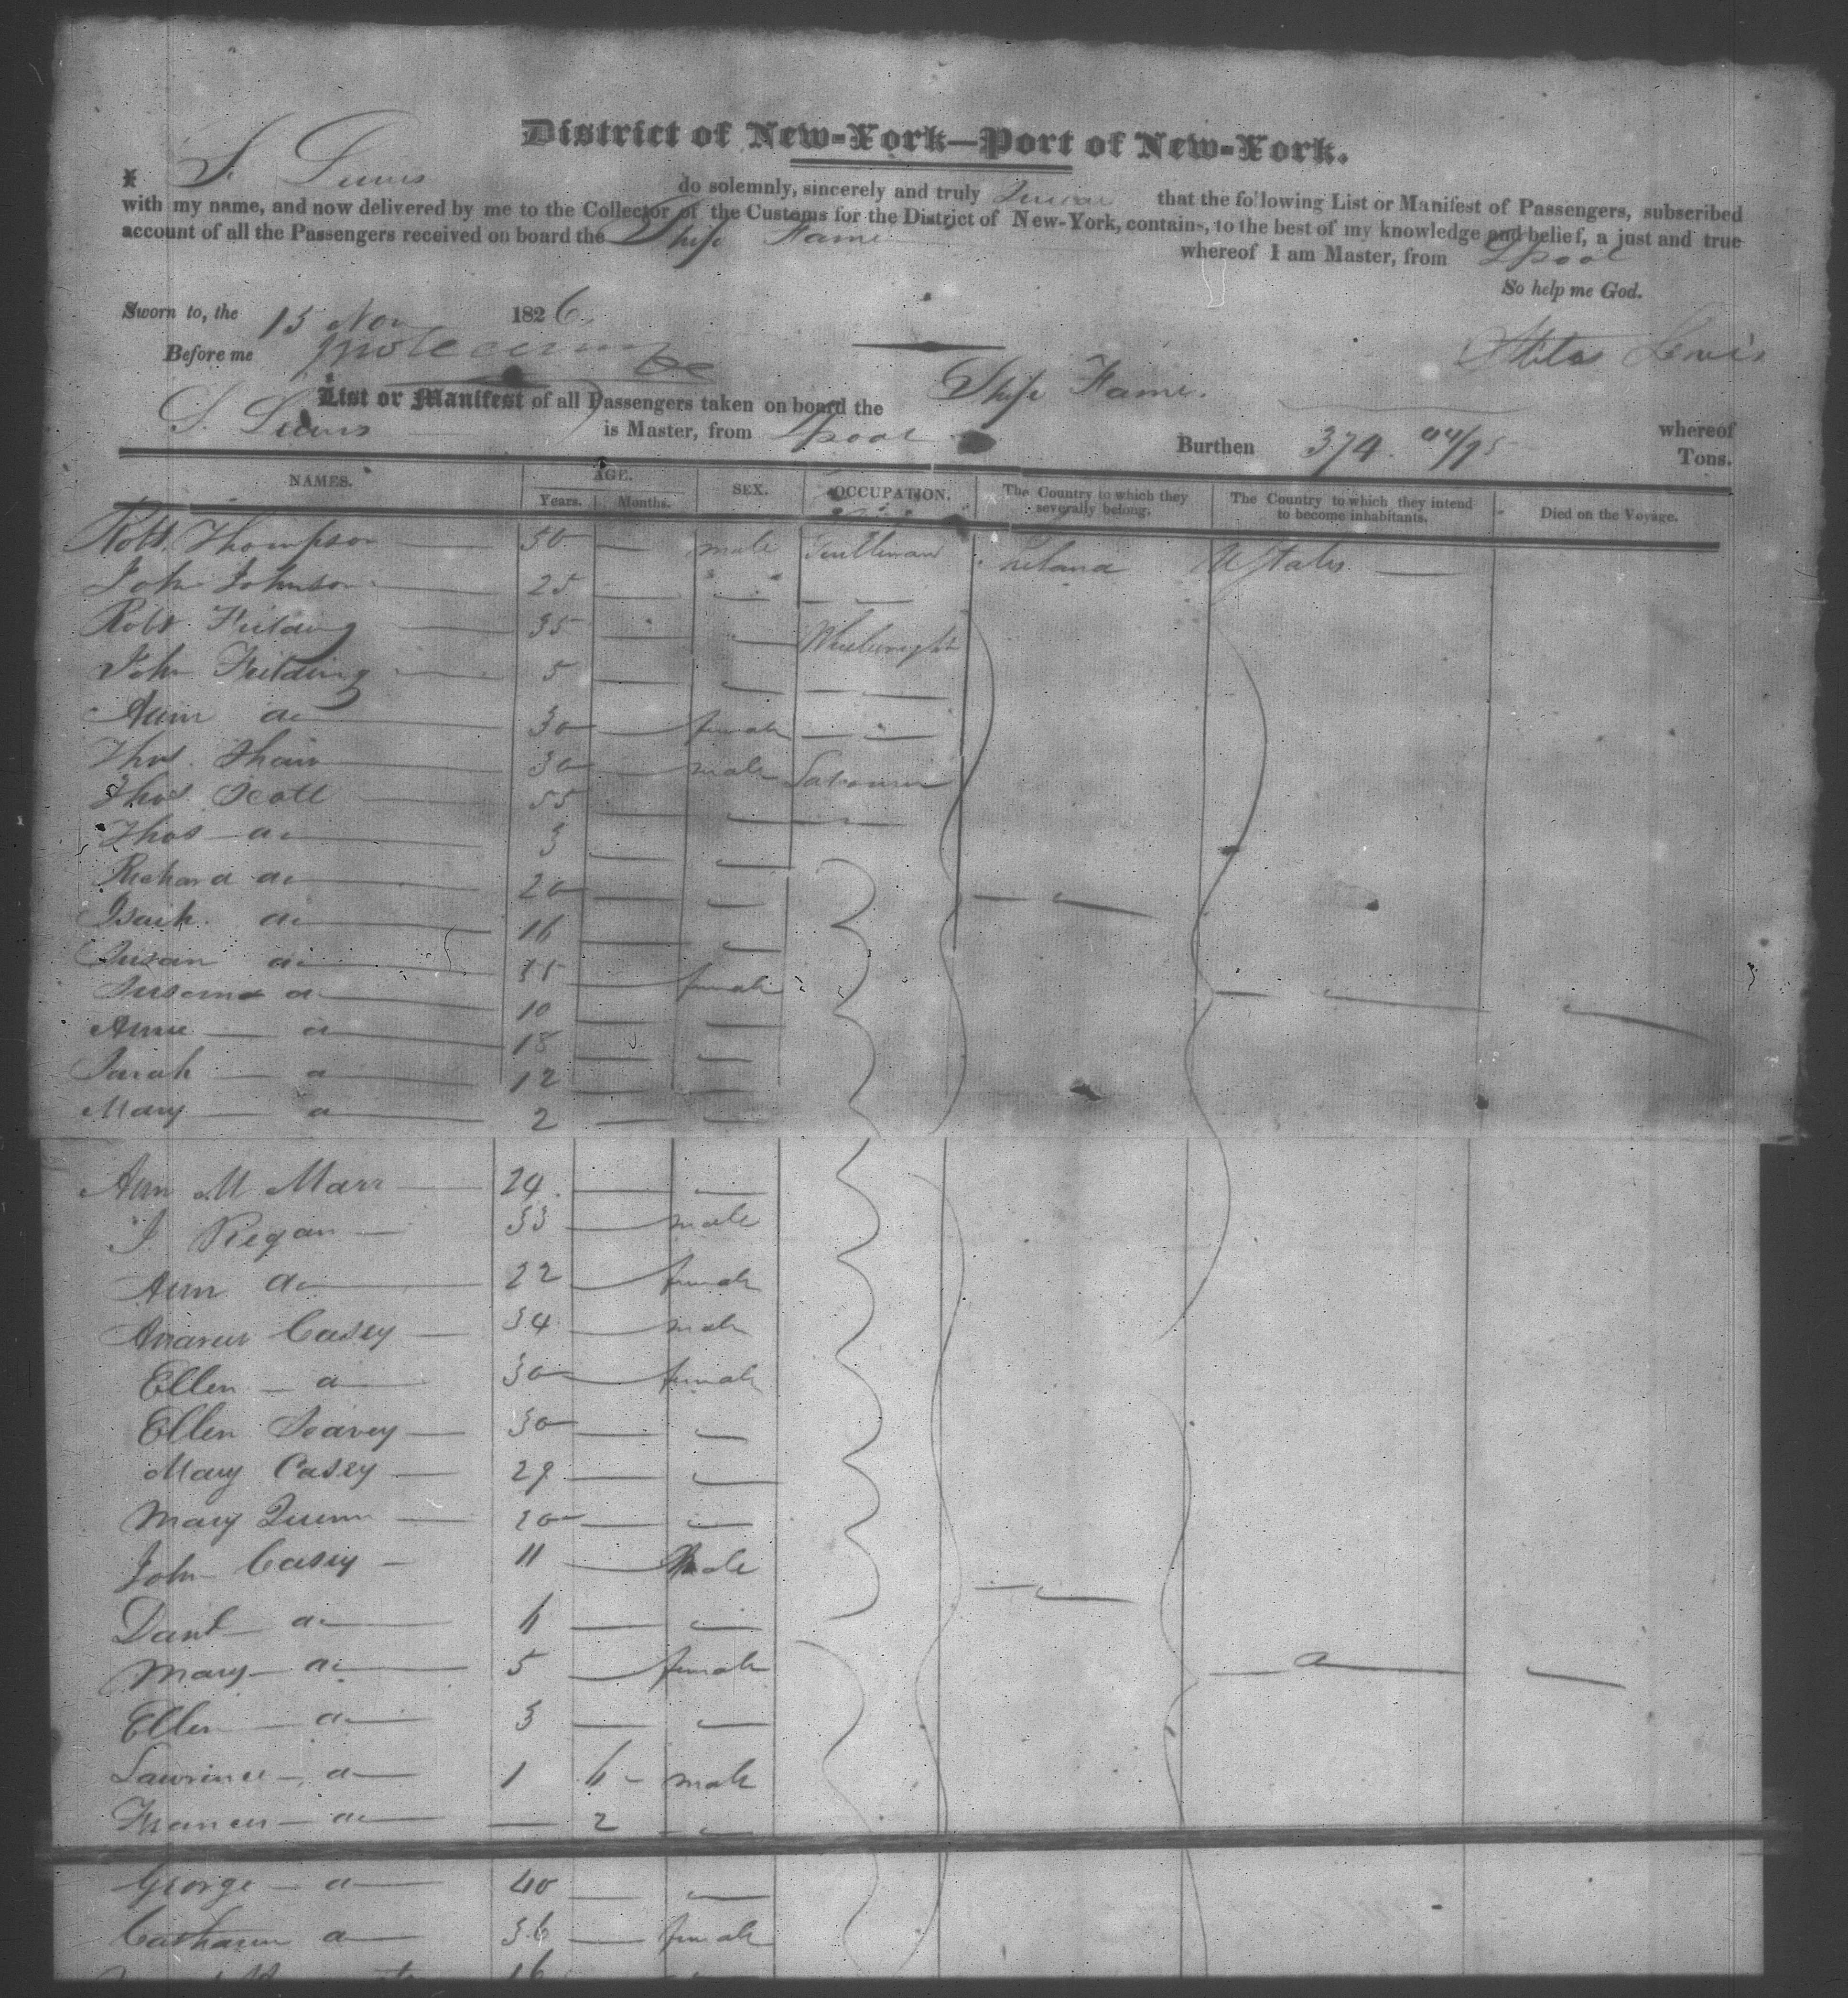 District of New-York—Port of New-York.
I S. Lewis do solemnly, sincerely and truly swear that the following List or Manifest of Passengers, subscribed
with my name, and now delivered by me to the Collector of the Customs for the District of New-York, contains, to the best of my knowledge and belief, a just and true
account of all the Passengers received on board the Ship Fame whereof I am Master, from Lpool
So help me God.
Sworn to, the 15 Nov 1826.
Before me
Stiles Lewis
List or Manifest of all Passengers taken on board the Ship Fame. whereof
S. Lewis is Master, from Lpool Burthen 374. 94/95 Tons.
NAMES. AGE. SEX. OCCUPATION. The Country to which they severally belong. The Country to which they intend to become inhabitants. Died on the Voyage.
Years. Months.
Robt. Thompson 50 male Gentleman Ireland U States
John Johnson 25
Robt Fielding 35 Wheelwright
John Fielding 5
Ann do 30 female
Thos. Shaw 30 male Labourer
Thos. Scott 55
Thos do 3
Richard do 20
Isaih. do 16
Susan do 35 female
Susana do 10
Anne do 18
Sarah do 12
Mary do 2
Ann M Marr 24
J. Regan 33 male
Ann do 22 female
Andrew Casey 34 male
Ellen do 30 female
Ellen Seavey 30
Mary Casey 29
Mary Quinn 20
John Casey 11 Male
Danl do 6
Mary do 5 female
Ellen do 3
Lawrence do 1 6 male
Francis do 2
George do 40
Catharine do 36 female
16